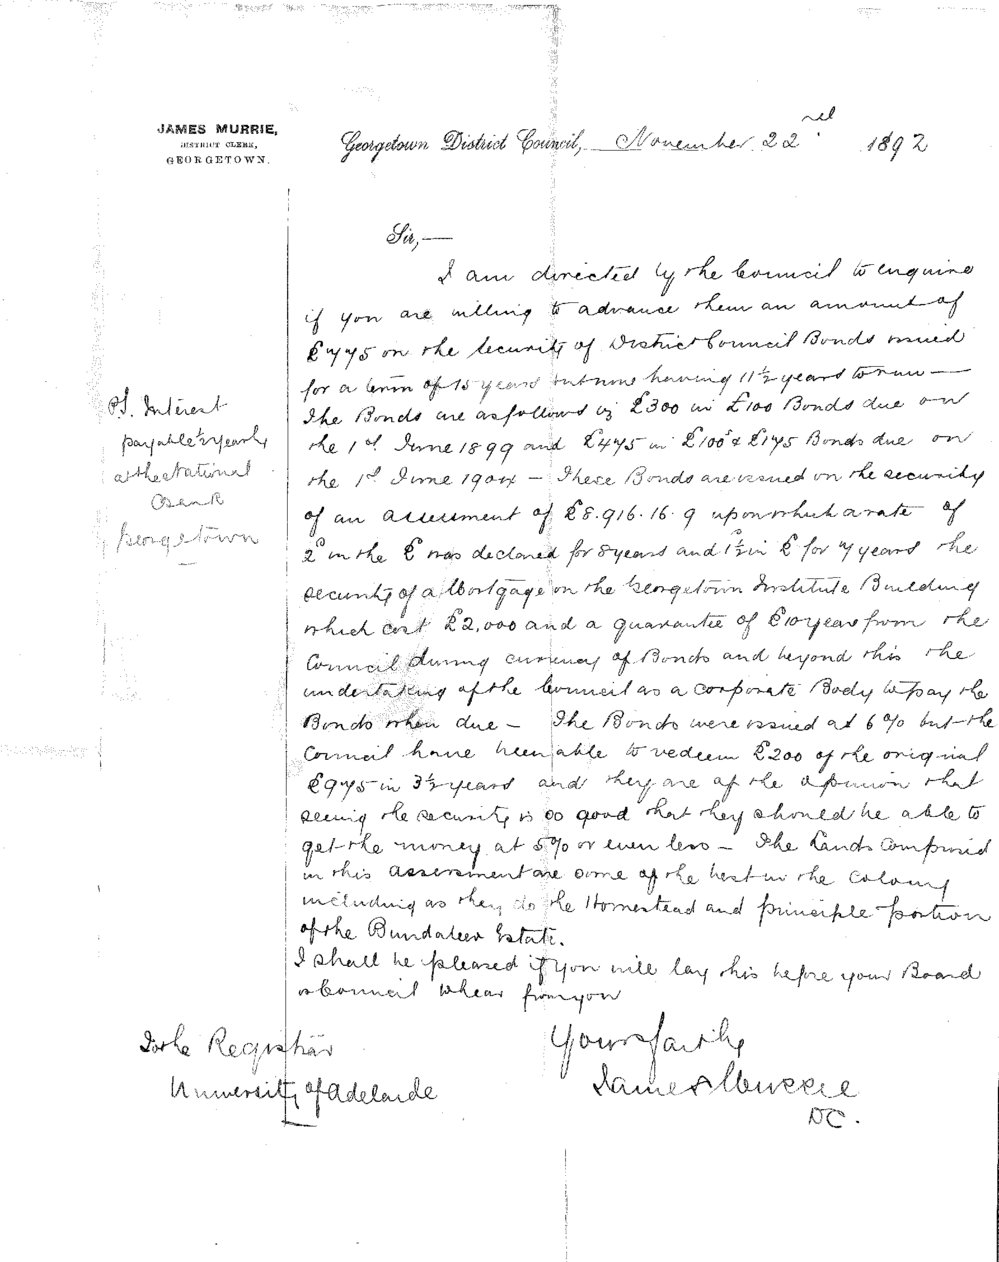 JAMES MURRIE,
DISTRICT CLERK,
GEORGETOWN.
Georgetown District Council, November 22nd 1892
Sir,—
I am directed by the Council to enquire
if you are willing to advance them an amount of
£775 on the security of District Council Bonds issued
for a term of 15 years but now having 11½ years to run —
The Bonds are as follows viz £300 in £100 Bonds due on
the 1st June 1899 and £475 in £100s & £175 Bonds due on
the 1st June 1904 — These Bonds are issued on the security
of an assessment of £8.916.16.9 upon which a rate of
2d in the £ was declared for 8 years and 1½d in £ for 7 years the
security of a Mortgage on the Georgetown Institute Building
which cost £2,000 and a guarantee of £10 year from the
Council during currency of Bonds and beyond this the
undertaking of the Council as a corporate Body to pay the
Bonds when due — The Bonds were issued at 6% but the
Council have been able to redeem £200 of the original
£975 in 3½ years and they are of the opinion that
seeing the security is so good that they should be able to
get the money at 5% or even less — The Lands comprised
in this assessment are some of the best in the Colony
including as they do the Homestead and principle portion
of the Bundaleer Estate.
I shall be pleased if you will lay this before your Board
or Council & hear from you
Yours faithly
James Murrie
DC.
To the Registrar
University of Adelaide
PS. Interest
payable ½ yearly
at the National
Bank
Georgetown